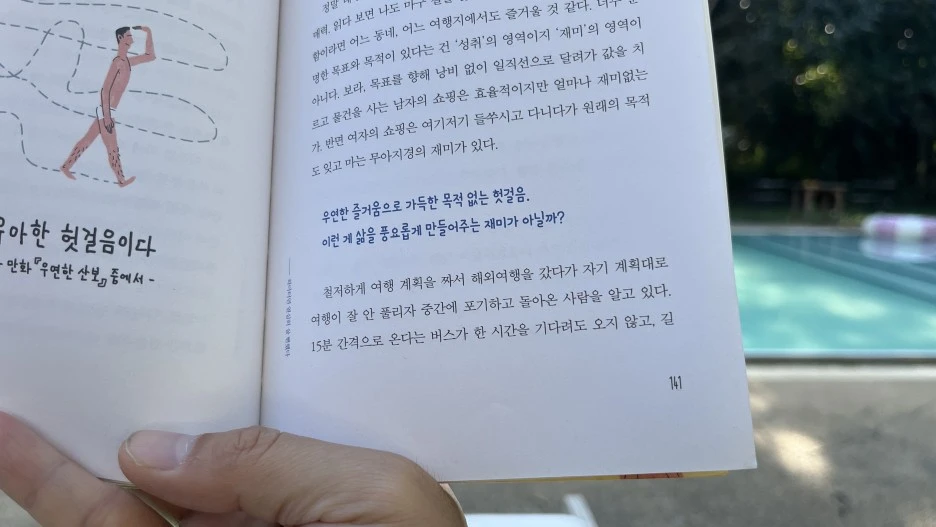 아한 헛걸음이다
만화 『우연한 산보』 중에서 -
정말
매력. 읽다 보면 나도 마구
함이라면 어느 동네, 어느 여행지에서도 즐거울 것 같다. 너무
명한 목표와 목적이 있다는 건 ‘성취’의 영역이지 ‘재미’의 영역이
아니다. 보라, 목표를 향해 낭비 없이 일직선으로 달려가 값을 치
르고 물건을 사는 남자의 쇼핑은 효율적이지만 얼마나 재미없는
가. 반면 여자의 쇼핑은 여기저기 들쑤시고 다니다가 원래의 목적
도 잊고 마는 무아지경의 재미가 있다.
우연한 즐거움으로 가득한 목적 없는 헛걸음.
이런 게 삶을 풍요롭게 만들어주는 재미가 아닐까?
철저하게 여행 계획을 짜서 해외여행을 갔다가 자기 계획대로
여행이 잘 안 풀리자 중간에 포기하고 돌아온 사람을 알고 있다.
15분 간격으로 온다는 버스가 한 시간을 기다려도 오지 않고, 길
141